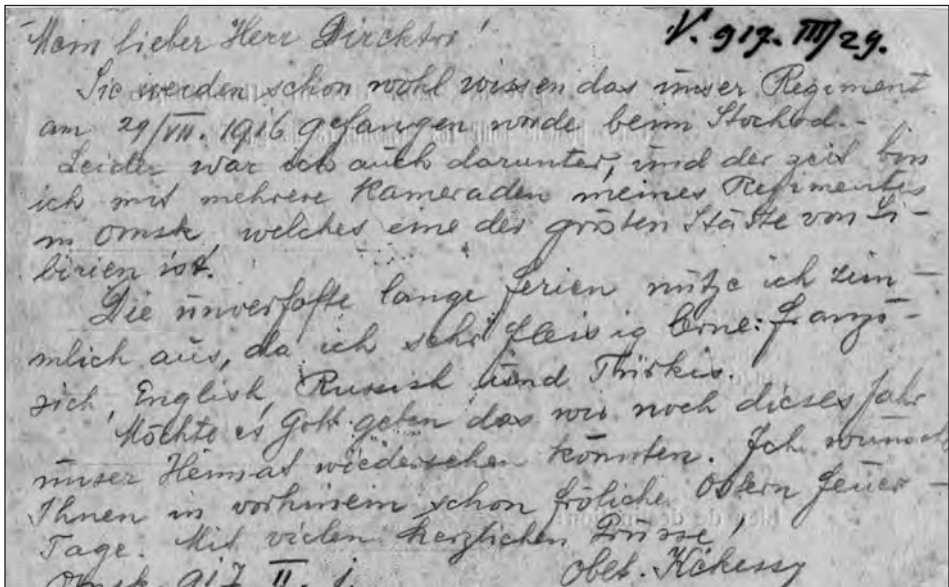 Mein lieber Herr Direktor!
V. 917. III/29.
Sie werden schon wohl wissen das unser Regiment
am 29/VII. 1916 gefangen wurde beim Stochod.
Leider war ich auch darunter, und der zeit bin
ich mit mehrere Kameraden meines Regimentes
in Omsk, welches eine der grösten Stätte von Si-
birien ist.
Die unverhofte lange ferien nütze ich zim-
mlich aus, da ich sehr fleisig lerne: franzö-
sich, English, Russish und Thürkis.
Möchte es Gott geben das wir noch dieses Jahr
unser Heimat wiedersehen könnten. Ich wünsche
Ihnen in vorhinein schon fröliche Ostern feuer-
Tage. Mit vielen herzlichen Grüsse!
Omsk. 917. II. 1. oblt. Kékessy